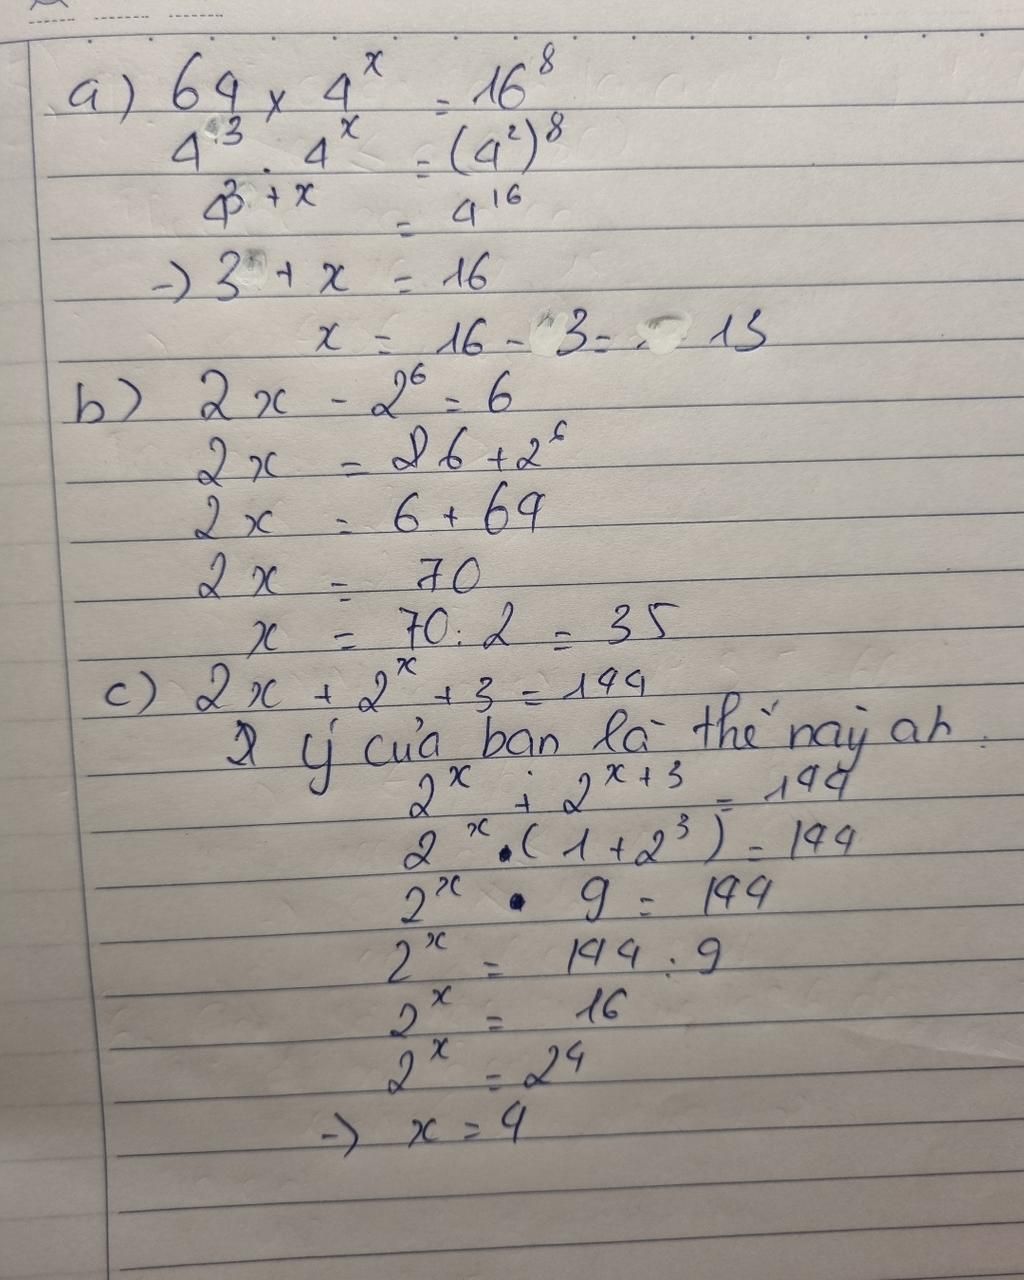 a) 64 x 4^x = 16^8
4^3 . 4^x = (4^2)^8
4^3 + x = 4^16
-> 3 + x = 16
x = 16 - 3 = 13
b) 2x - 2^6 = 6
2x = 6 + 2^6
2x = 6 + 64
2x = 70
x = 70 : 2 = 35
c) 2x + 2^x + 3 = 144
ý của bạn là thế này ah.
2^x + 2^x+3 = 144
2^x . (1 + 2^3) = 144
2^x . 9 = 144
2^x = 144 : 9
2^x = 16
2^x = 2^4
-> x = 4